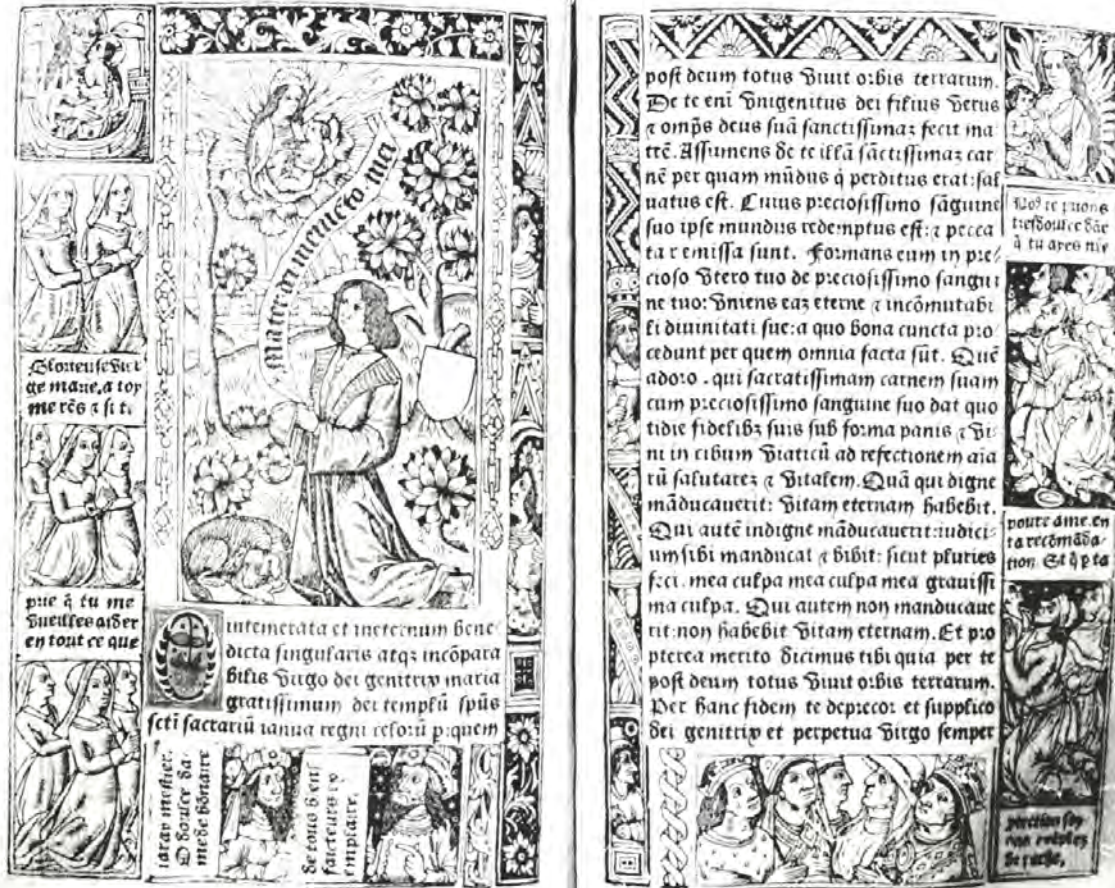 Mater dei memento mei
Glorieuse vier
ge marie, a toy
me rēs ⁊ si te
prie q̄ tu me
vueilles aider
en tout ce que
O intemerata et ineternum bene⸗
dicta singularis atqꝫ incōpara
bilis virgo dei genitrix maria
gratissimum dei templū spūs
sctī sacrariū ianua regni celorū p̱ quem
iaray mestier.
O doulce da⸗
me de bōnaire
de tous biens
facteurs ⁊
post deum totus viuit orbis terrarum.
De te eni vnigenitus dei filius verus
⁊ omp̄s deus suā sanctissimaꝫ fecit ma
trē. Assumens de te illā sāctissimaꝫ car
nē per quam mūdus q̇ perditus erat: sal
uatus est. Cuius preciosissimo sāguine
suo ipse mundus redemptus est: ⁊ pecca
ta remissa sunt. Formans eum in pre⸗
cioso vtero tuo de preciosissimo sangui
ne tuo: vniens eaꝫ eterne ⁊ incōmutabi
li diuinitati sue: a quo bona cuncta pro
cedunt per quem omnia facta sūt. Quē
adoro. qui sacratissimam carnem suam
cum preciosissimo sanguine suo dat quo
tidie fidelibꝫ suis sub forma panis ⁊ vi
ni in cibum viaticū ad refectionem aīa
rū salutareꝫ ⁊ vitalem. Quā qui digne
māducauerit: vitam eternam habebit.
Qui autē indigne māducauerit: iudici⸗
um sibi manducat ⁊ bibit: sicut pluries
feci. mea culpa mea culpa mea grauissi
ma culpa. Qui autem non manducaue
rit: non habebit vitam eternam. Et pro
pterea merito dicimus tibi quia per te
post deum totus viuit orbis terrarum.
Per hanc fidem te deprecor et supplico
dei genitrix et perpetua virgo semper
tresdoulce dāe
q̄ tu ayes mō
poure ame en
ta recōmāda⸗
tion. Et q̄ p̱ ta